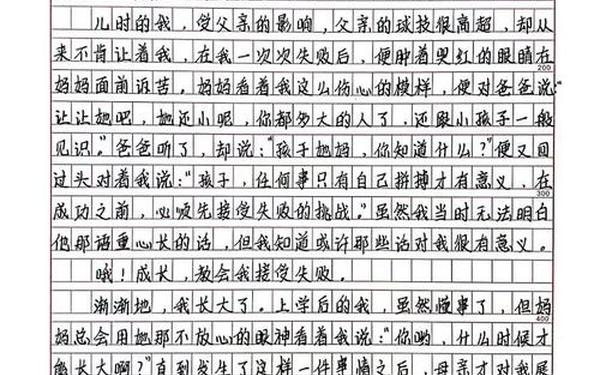 儿时的我，受父亲的影响，父亲的球技很高超，却从
来不肯让着我，在我一次次失败后，便肿着哭红的眼睛在
200
妈妈面前诉苦。妈妈看着我这么伤心的模样，便对爸爸说：“
让让她吧，她还小呢，你都多大的人了，还跟小孩子一般
见识。”爸爸听了，却说：“孩子她妈，你知道什么？”便又回
过头对着我说：“孩子，任何事只有自己拼搏才有意义，在
300
成功之前，必须先接受失败的挑战。”虽然我当时无法明白
他那语重心长的话，但我知道或许那些话对我很有意义。
哦！成长，教会我接受失败。
渐渐地，我长大了。上学后的我，虽然懂事了，但妈
400
妈总会用她那不放心的眼神看着我说：“你哟，什么时候才
能长大啊？”直到发生了这样一件事情之后，母亲才对我展